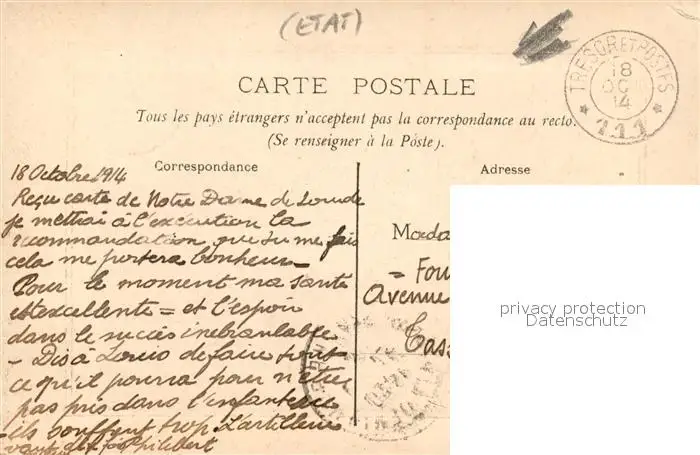 (ETAT)
TRESOR ET POSTES
18
OCT
14
* 111 *
CARTE POSTALE
Tous les pays étrangers n'acceptent pas la correspondance au recto.
(Se renseigner à la Poste).
Correspondance
Adresse
18 Octobre 1914
Reçu carte de Notre Dame de Lourde
je mettrai à l'exécution la
recommandation que tu me fais
cela me portera bonheur -
Pour le moment ma santé
est excellente = et l'espoir
dans le succès inébranlable
- Dis à Louis de faire tout
ce qu'il pourra pour n'être
pas pris dans l'infanterie
ils souffrent trop. L'artillerie
vaut dix fois Philibert
Mada
= Fou
Avenue
Cass
privacy protection
Datenschutz